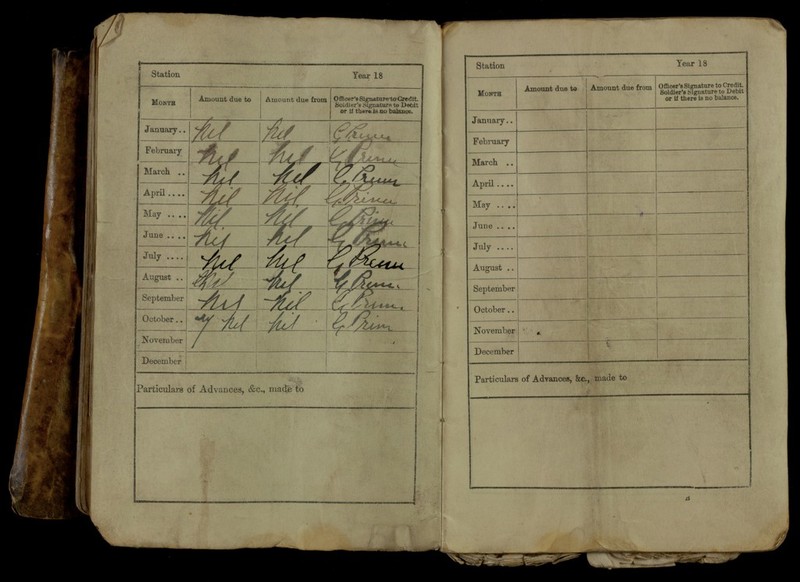 Station Year 18
MONTH Amount due to Amount due from Officer's Signature to Credit. Soldier's Signature to Debit or if there is no balance.
January.. Nil Nil
February Nil Nil
March .. Nil Nil
April .... Nil Nil
May .. .. Nil Nil
June .. .. Nil Nil
July .... Nil Nil
August .. Nil Nil
September Nil Nil
October.. Nil Nil
November
December
Particulars of Advances, &c., made to
Station Year 18
MONTH Amount due to Amount due from Officer's Signature to Credit. Soldier's Signature to Debit or if there is no balance.
January..
February
March ..
April ....
May .. ..
June .. ..
July ....
August ..
September
October..
November
December
Particulars of Advances, &c., made to